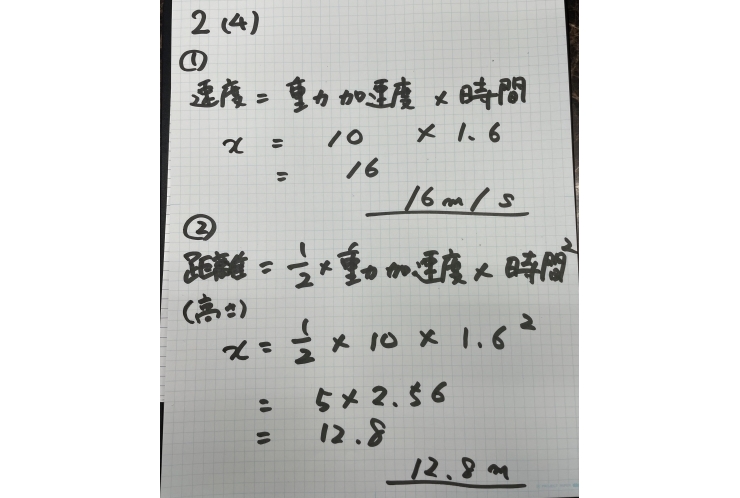 2 (4)
①
速度 = 重力加速度 × 時間
x = 10 × 1.6
= 16
16 m/s
②
距離 = 1/2 × 重力加速度 × 時間²
(高さ)
x = 1/2 × 10 × 1.6²
= 5 × 2.56
= 12.8
12.8 m